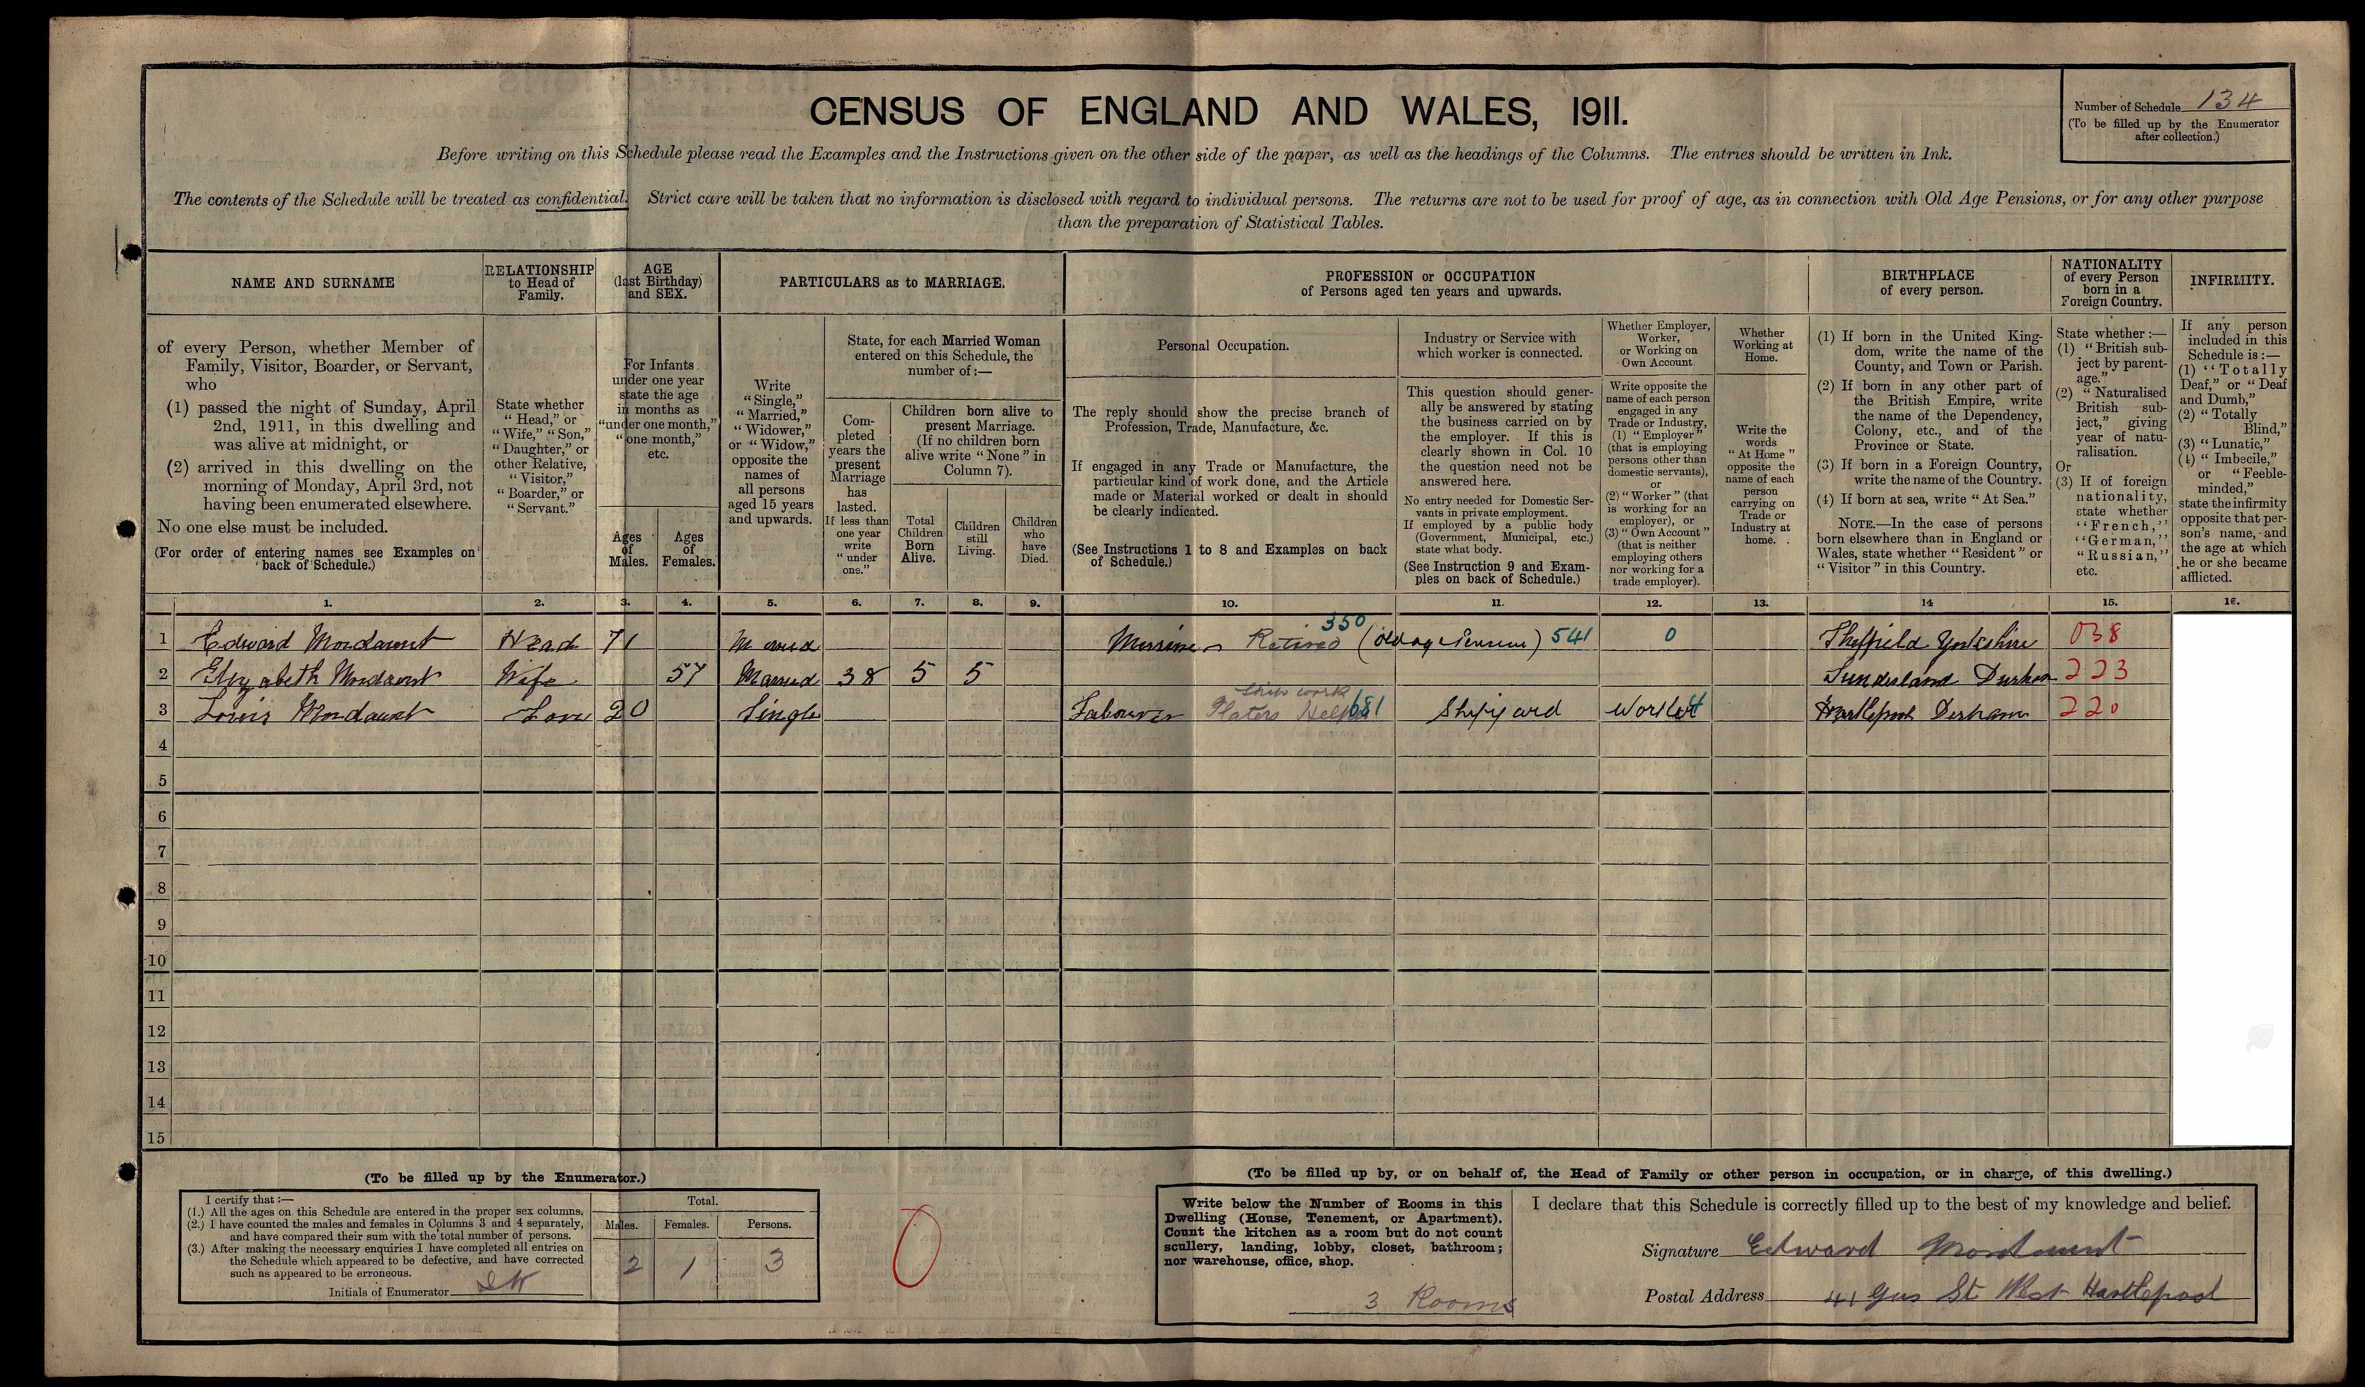 CENSUS OF ENGLAND AND WALES, 1911.
Number of Schedule 134
(To be filled up by the Enumerator
after collection.)
Before writing on this Schedule please read the Examples and the Instructions given on the other side of the paper, as well as the headings of the Columns. The entries should be written in Ink.
The contents of the Schedule will be treated as confidential. Strict care will be taken that no information is disclosed with regard to individual persons. The returns are not to be used for proof of age, as in connection with Old Age Pensions, or for any other purpose
than the preparation of Statistical Tables.
NAME AND SURNAME
of every Person, whether Member of
Family, Visitor, Boarder, or Servant,
who
(1) passed the night of Sunday, April
2nd, 1911, in this dwelling and
was alive at midnight, or
(2) arrived in this dwelling on the
morning of Monday, April 3rd, not
having been enumerated elsewhere.
No one else must be included.
(For order of entering names see Examples on
back of Schedule.)
RELATIONSHIP
to Head of
Family.
State whether
"Head," or
"Wife," "Son,"
"Daughter," or
other Relative,
"Visitor,"
"Boarder," or
"Servant."
AGE
(last Birthday)
and SEX.
For Infants
under one year
state the age
in months as
"under one month,"
"one month,"
etc.
Ages
of
Males.
Ages
of
Females.
PARTICULARS as to MARRIAGE.
Write
"Single,"
"Married,"
"Widower,"
or "Widow,"
opposite the
names of
all persons
aged 15 years
and upwards.
State, for each Married Woman
entered on this Schedule, the
number of:—
Com-
pleted
years the
present
Marriage
has
lasted.
If less than
one year
write
"under
one."
Children born alive to
present Marriage.
(If no children born
alive write "None" in
Column 7).
Total
Children
Born
Alive.
Children
still
Living.
Children
who
have
Died.
PROFESSION or OCCUPATION
of Persons aged ten years and upwards.
Personal Occupation.
The reply should show the precise branch of
Profession, Trade, Manufacture, &c.
If engaged in any Trade or Manufacture, the
particular kind of work done, and the Article
made or Material worked or dealt in should
be clearly indicated.
(See Instructions 1 to 8 and Examples on back
of Schedule.)
Industry or Service with
which worker is connected.
This question should gener-
ally be answered by stating
the business carried on by
the employer. If this is
clearly shown in Col. 10
the question need not be
answered here.
No entry needed for Domestic Ser-
vants in private employment.
If employed by a public body
(Government, Municipal, etc.)
state what body.
(See Instruction 9 and Exam-
ples on back of Schedule.)
Whether Employer,
Worker,
or Working on
Own Account.
Write opposite the
name of each person
engaged in any
Trade or Industry,
(1) "Employer"
(that is employing
persons other than
domestic servants),
or
(2) "Worker" (that
is working for an
employer), or
(3) "Own Account"
(that is neither
employing others
nor working for a
trade employer).
Whether
Working at
Home.
Write the
words
"At Home"
opposite the
name of each
person
carrying on
Trade or
Industry at
home.
BIRTHPLACE
of every person.
(1) If born in the United King-
dom, write the name of the
County, and Town or Parish.
(2) If born in any other part of
the British Empire, write
the name of the Dependency,
Colony, etc., and of the
Province or State.
(3) If born in a Foreign Country,
write the name of the Country.
(4) If born at sea, write "At Sea."
NOTE.—In the case of persons
born elsewhere than in England or
Wales, state whether "Resident" or
"Visitor" in this Country.
NATIONALITY
of every Person
born in a
Foreign Country.
State whether:—
(1) "British sub-
ject by parent-
age."
(2) "Naturalised
British sub-
ject," giving
year of natu-
ralisation.
Or
(3) If of foreign
nationality,
state whether
"French,"
"German,"
"Russian,"
etc.
INFIRMITY.
If any person
included in this
Schedule is:—
(1) "Totally
Deaf," or "Deaf
and Dumb,"
(2) "Totally
Blind,"
(3) "Lunatic,"
(4) "Imbecile,"
or "Feeble-
minded,"
state the infirmity
opposite that per-
son's name, and
the age at which
he or she became
afflicted.
1. 2. 3. 4. 5. 6. 7. 8. 9. 10. 11. 12. 13. 14 15. 16.
350
1 Edward Mordaunt Head 71 Married Retired (old age Pension) 541 0 Sheffield Yorkshire 038
2 Elizabeth Mordaunt Wife 57 Married 38 5 5 Sunderland Durham 223
Ship work
3 Louis Mordaunt Son 20 Single Labourer Platers Helper 681 Shipyard Worker Hartlepool Durham 220
4
5
6
7
8
9
10
11
12
13
14
15
(To be filled up by the Enumerator.)
I certify that:—
(1.) All the ages on this Schedule are entered in the proper sex columns.
(2.) I have counted the males and females in Columns 3 and 4 separately,
and have compared their sum with the total number of persons.
(3.) After making the necessary enquiries I have completed all entries on
the Schedule which appeared to be defective, and have corrected
such as appeared to be erroneous.
Initials of Enumerator
Total.
Males. Females. Persons.
2 1 3
0
(To be filled up by, or on behalf of, the Head of Family or other person in occupation, or in charge, of this dwelling.)
Write below the Number of Rooms in this
Dwelling (House, Tenement, or Apartment).
Count the kitchen as a room but do not count
scullery, landing, lobby, closet, bathroom;
nor warehouse, office, shop.
3 Rooms
I declare that this Schedule is correctly filled up to the best of my knowledge and belief.
Signature Edward Mordaunt
Postal Address 41 Gas St West Hartlepool